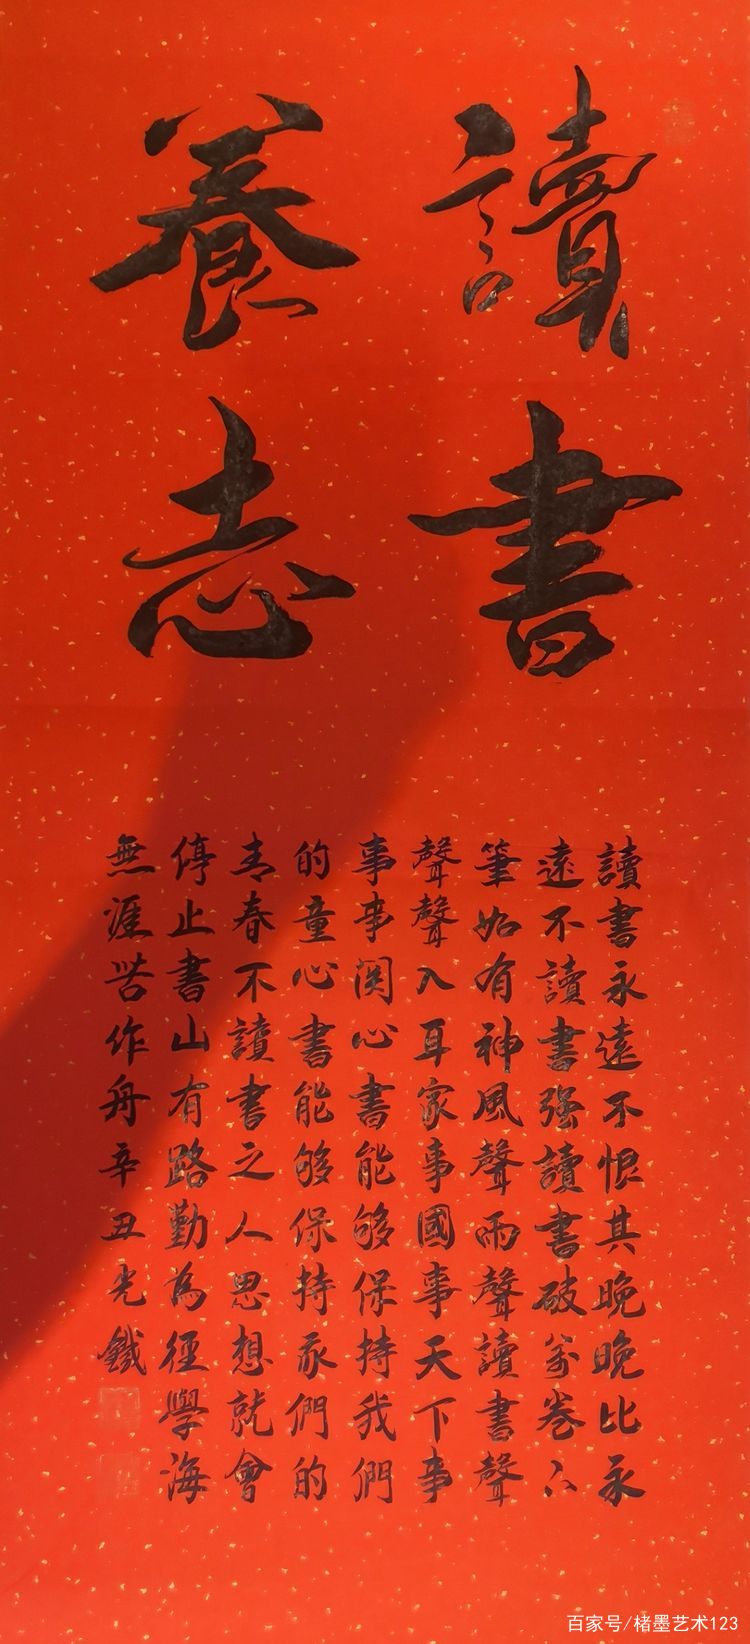 讀書
養志
讀書永遠不恨其晚晚比永
遠不讀書强讀書破萬卷下
筆如有神風聲雨聲讀書聲
聲聲入耳家事國事天下事
事事関心書能够保持我們
的童心書能够保持我們的
青春不讀書之人思想就會
停止書山有路勤為徑學海
無涯苦作舟辛丑光鐵
百家号/楮墨艺术123